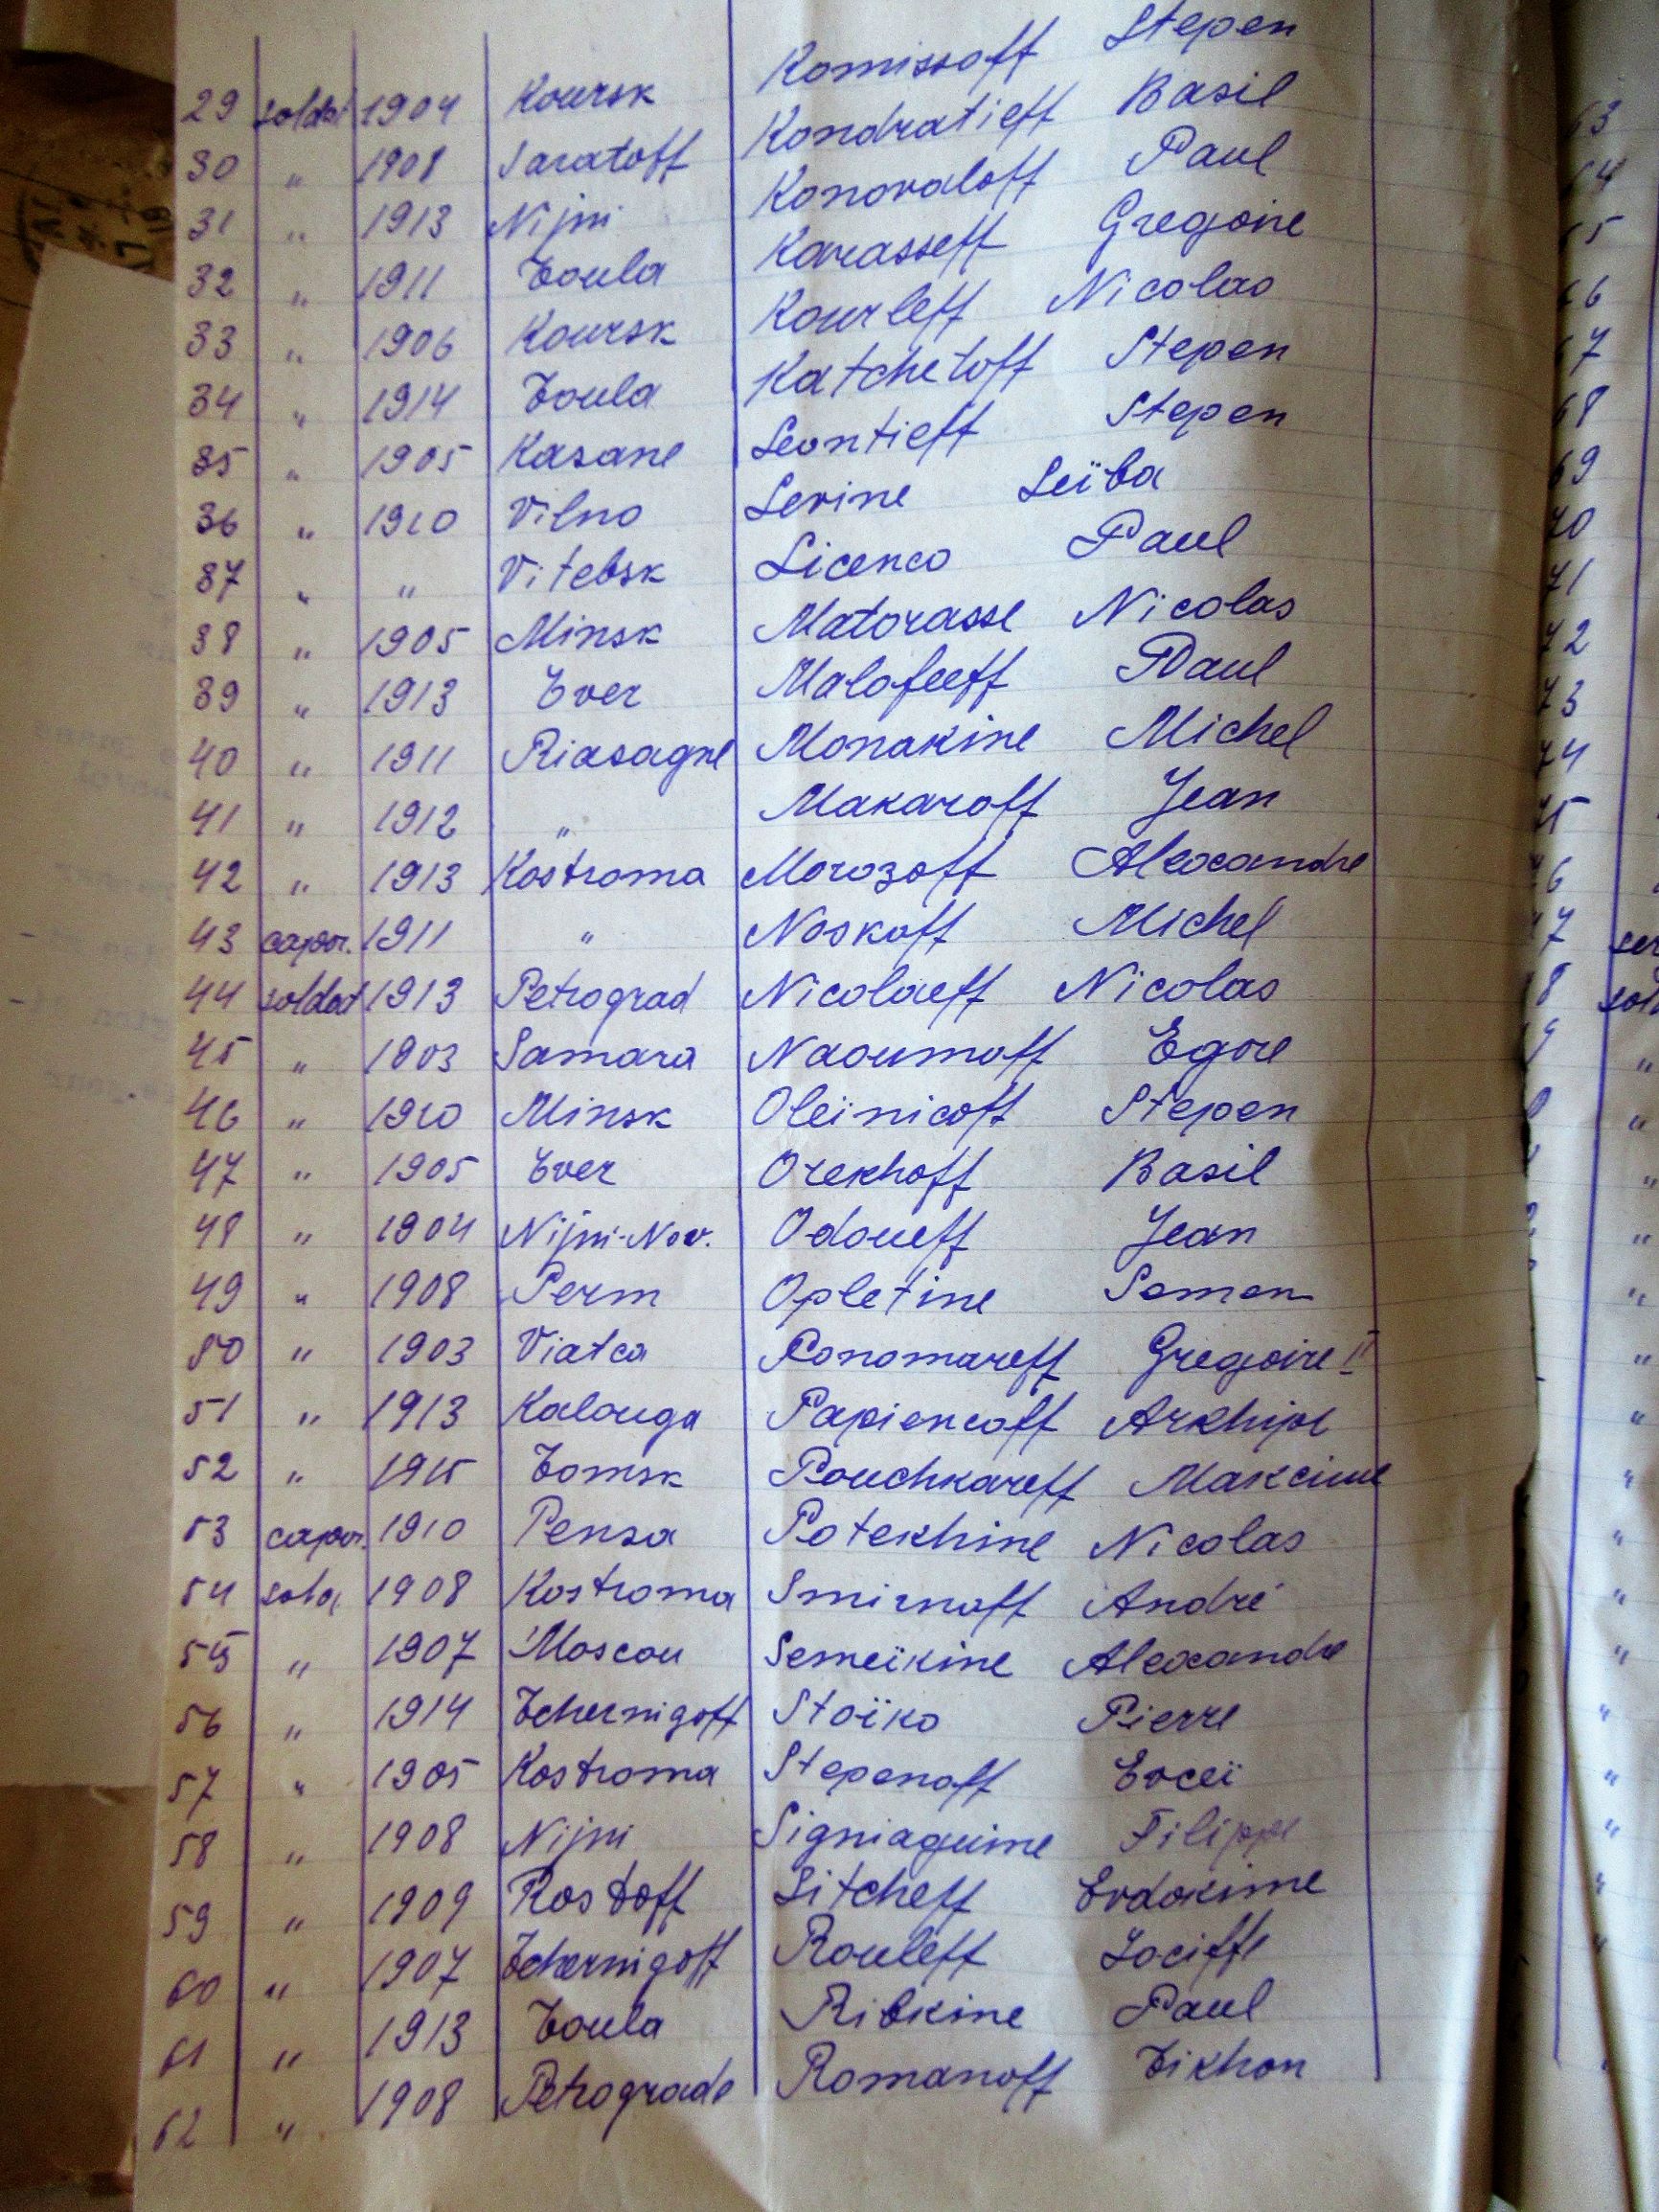 29 soldat 1904 Koursk Komissoff Stepen
30 " 1908 Saratoff Kondratieff Basil
31 " 1913 Nijni Konovaloff Paul
32 " 1911 Toula Karasseff Gregoire
33 " 1906 Koursk Kourleff Nicolas
34 " 1914 Toula Katcheloff Stepen
35 " 1905 Kasane Leontieff Stepen
36 " 1910 Vilno Levine Leïba
37 " " Vitebsk Licenco Paul
38 " 1905 Minsk Matorasse Nicolas
39 " 1913 Tver Malofeeff Paul
40 " 1911 Riasagne Monakine Michel
41 " 1912 " Makaroff Jean
42 " 1913 Kostroma Morozoff Alexandre
43 capor. 1911 " Noskoff Michel
44 soldat 1913 Petrograd Nicolaeff Nicolas
45 " 1903 Samara Naoumoff Egore
46 " 1910 Minsk Oleïnicoff Stepen
47 " 1905 Tver Orekhoff Basil
48 " 1904 Nijni-Nov. Odoueff Jean
49 " 1908 Perm Opletine Semen
50 " 1903 Viatca Ponomareff Gregoire II
51 " 1913 Kalouga Papiencoff Arkhipe
52 " 1915 Tomsk Pouchkareff Makcime
53 capor. 1910 Pensa Potekhine Nicolas
54 sold. 1908 Kostroma Smirnoff André
55 " 1907 Moscou Semeïkine Alexandre
56 " 1914 Tchernigoff Stoïko Pierre
57 " 1905 Kostroma Stepenoff Evceï
58 " 1908 Nijni Signiaguine Filippe
59 " 1909 Rostoff Sitcheff Evdokime
60 " 1907 Tchernigoff Rouleff Iociffe
61 " 1913 Toula Ribkine Paul
62 " 1908 Petrograde Romanoff Tikhon